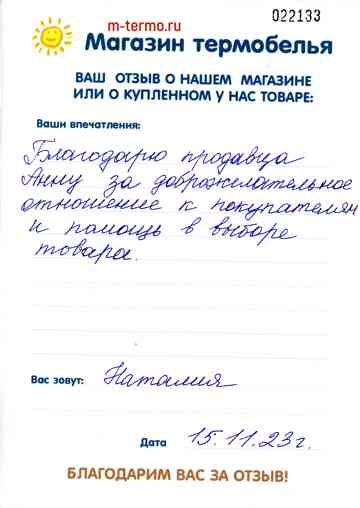 022133
m-termo.ru
Магазин термобелья
ВАШ ОТЗЫВ О НАШЕМ МАГАЗИНЕ
ИЛИ О КУПЛЕННОМ У НАС ТОВАРЕ:
Ваши впечатления:
Благодарю продавца
Анну за доброжелательное
отношение к покупателям
и помощь в выборе
товара.
Вас зовут: Наталия
Дата 15.11.23г.
БЛАГОДАРИМ ВАС ЗА ОТЗЫВ!